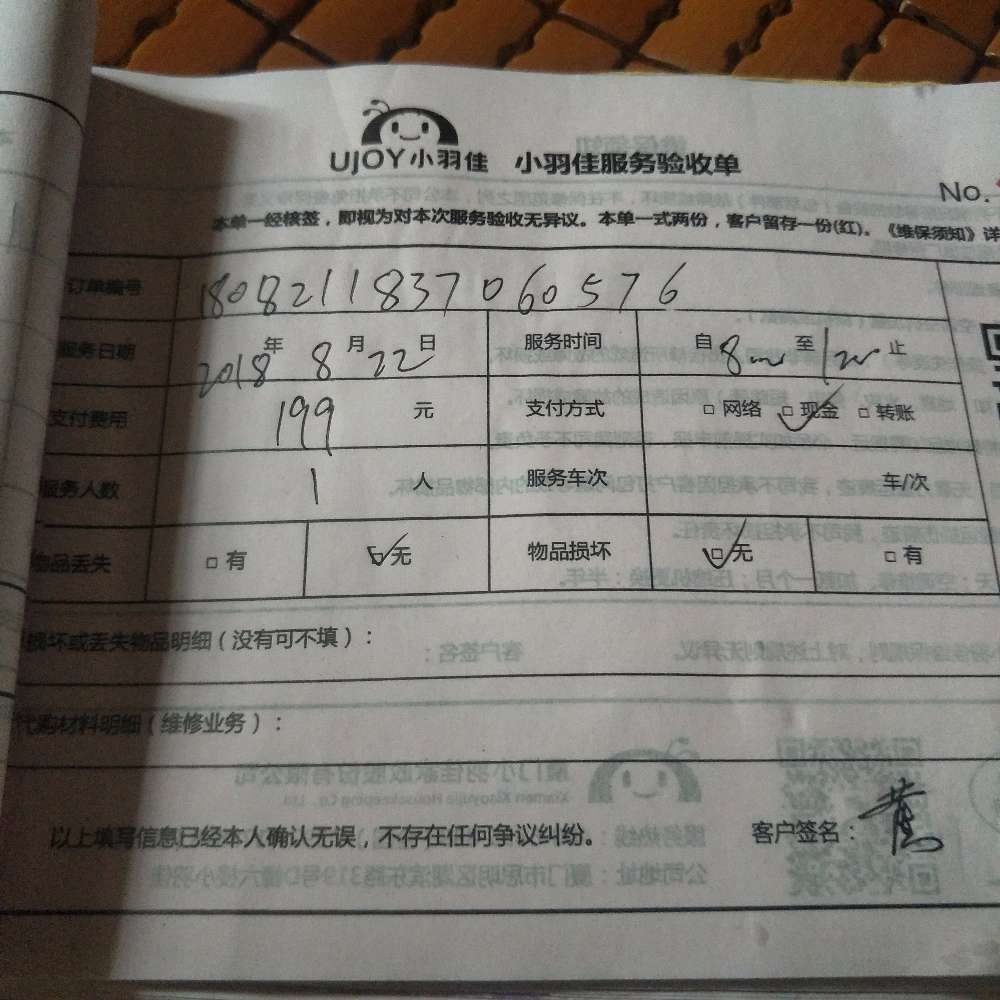 UJOY小羽佳 小羽佳服务验收单
No.
本单一经核签，即视为对本次服务验收无异议。本单一式两份，客户留存一份(红)。《维保须知》详
订单编号 1808211837060576
服务日期 2018年8月22日 服务时间 自8 至1 止
支付费用 199 元 支付方式 □网络 ☑现金 □转账
服务人数 1 人 服务车次 车/次
物品丢失 □有 ☑无 物品损坏 ☑无 □有
损坏或丢失物品明细（没有可不填）：
代购材料明细（维修业务）：
以上填写信息已经本人确认无误，不存在任何争议纠纷。 客户签名：黄